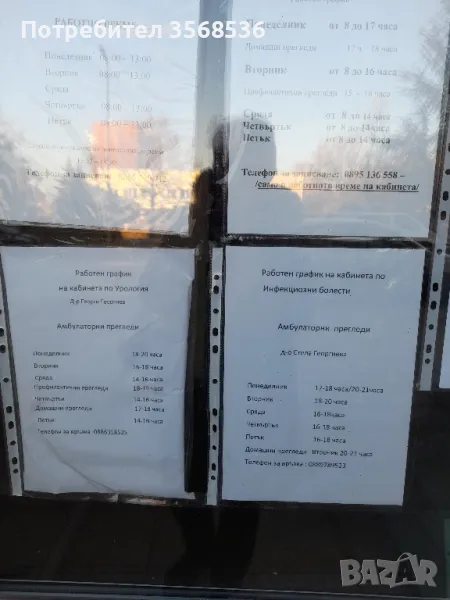 Потребител 3568536
РАБОТНО ВРЕМЕ
Понеделник 08:00 – 13:00
Вторник 08:00 – 13:00
Сряда
Четвъртък 08:00 – 13:00
Петък – 13:00
Понеделник от 8 до 17 часа
Домашни прегледи 17 – 18 часа
Вторник от 8 до 16 часа
Профилактични прегледи – 18 часа
Сряда от 8 до 14 часа
Четвъртък от 8 до 14 часа
Петък от 8 до 14 часа
Телефон за записване: 0895 136 558 –
/само в работното време на кабинета/
Работен график
на кабинета по Урология
Д-р Георги Георгиев
Амбулаторни прегледи
Понеделник 14-20 часа
Вторник 16-18 часа
Сряда 14-16 часа
Профилактични прегледи 18-19 часа
Четвъртък 14-16 часа
Домашни прегледи 17-18 часа
Петък 14-16 часа
Телефон за връзка
Работен график на кабинета по
Инфекциозни болести
Амбулаторни прегледи
д-р Стела Георгиева
Понеделник 17-18 часа/20-21часа
Вторник 18-20 часа
Сряда 16-18часа
Четвъртък 16-18 часа
Петък 16-18 часа
Домашни прегледи Вторник 20-21 часа
Телефон за връзка
BAZAR